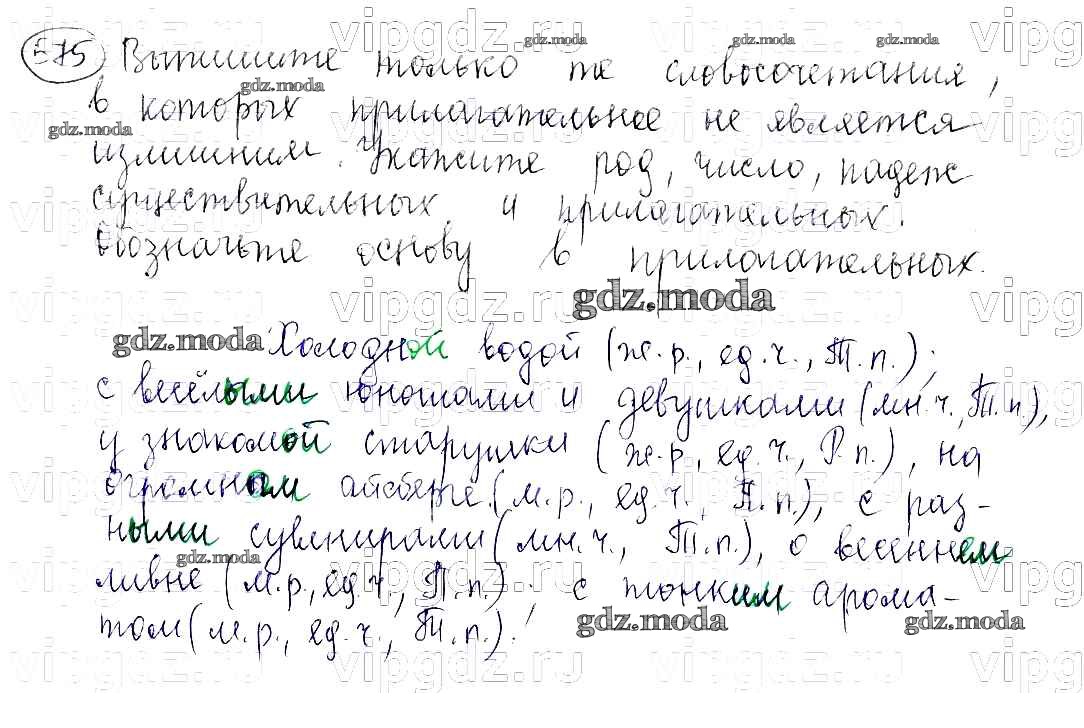 575 Выпишите только те словосочетания,
в которых прилагательное не является
излишним. Укажите род, число, падеж
существительных и прилагательных.
Обозначьте основу в прилагательных.
gdz.moda
Холодной водой (ж.р., ед.ч., Т.п.);
с весёлыми юношами и девушками (мн.ч., Т.п.),
у знакомой старушки (ж.р., ед.ч., Р.п.), на
огромном айсберге (м.р., ед.ч., П.п.), с раз-
ными сувенирами (мн.ч., Т.п.), о весеннем
ливне (м.р., ед.ч., П.п.), с тонким арома-
том (м.р., ед.ч., Т.п.).